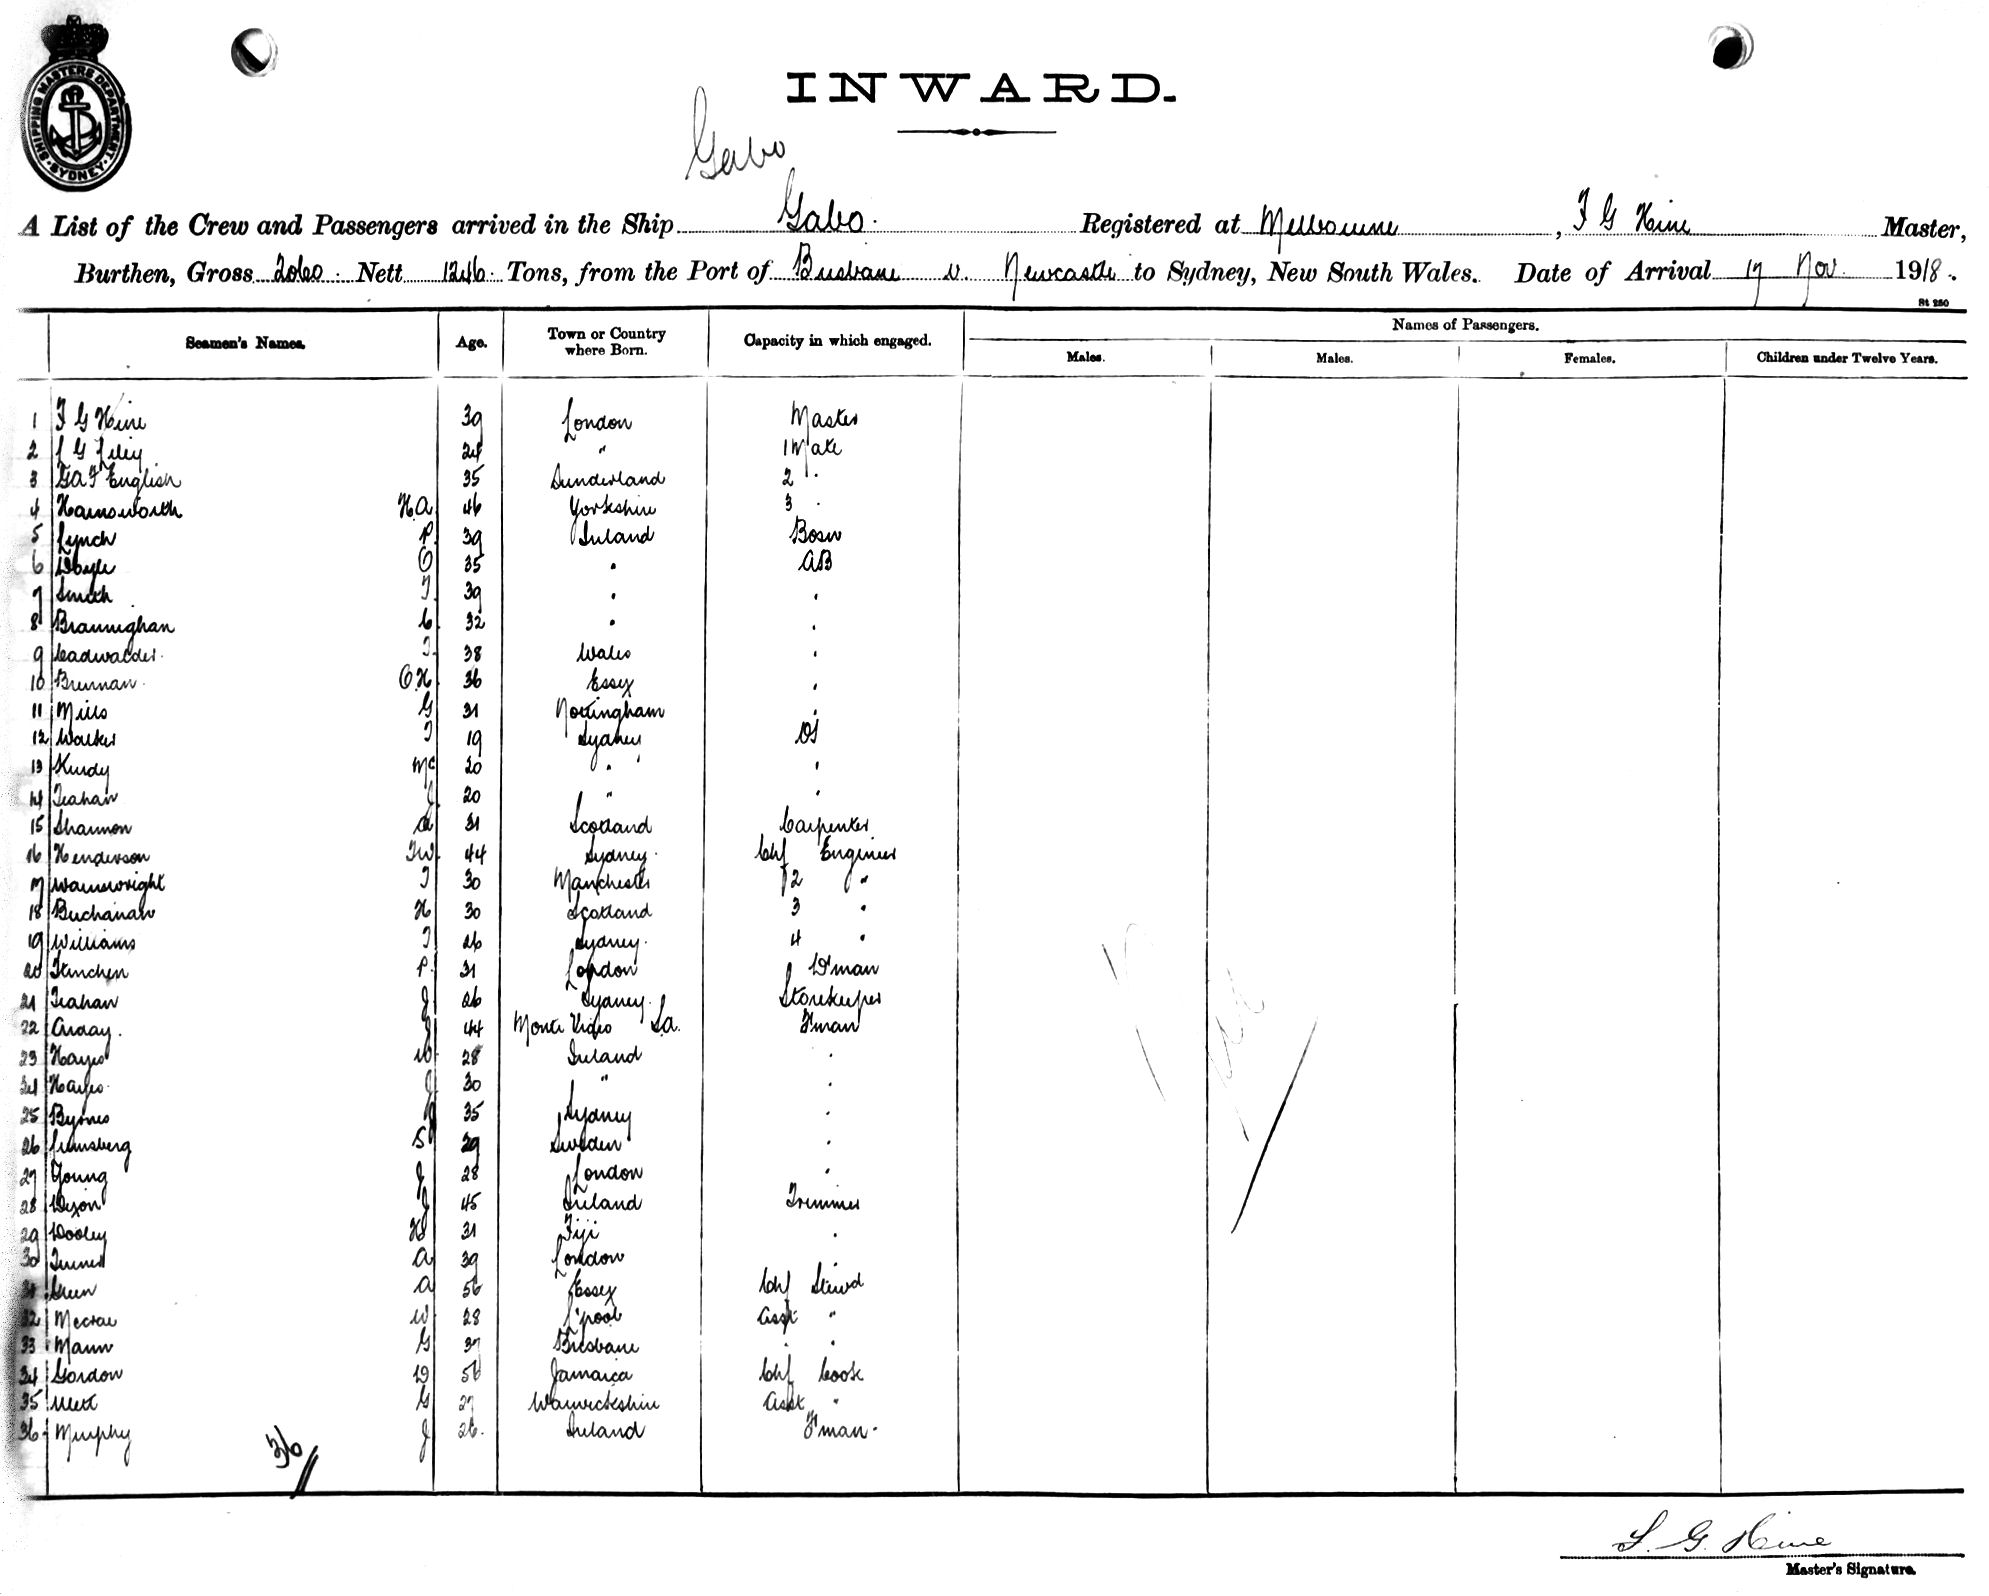 SHIPPING MASTERS DEPARTMENT SYDNEY
INWARD.
Gabo
A List of the Crew and Passengers arrived in the Ship Gabo. Registered at Melbourne, F G Hine Master,
Burthen, Gross 2060 Nett 1246 Tons, from the Port of Brisbane v. Newcastle to Sydney, New South Wales. Date of Arrival 17 Nov. 1918.
St 250
Seamen's Names. Age. Town or Country where Born. Capacity in which engaged. Names of Passengers.
Males. Males. Females. Children under Twelve Years.
1 F G Hine 39 London Master
2 G 24 " 1 Mate
3 G A F English 35 Sunderland 2 "
4 Hainsworth H.A 46 Yorkshire 3 "
5 Lynch P. 39 Ireland Bosn
6 Doyle O 35 " AB
7 Smith T 39 " "
8 Brannighan C. 32 " "
9 Cadwalder. T. 38 Wales "
10 Brennan. O.H 36 Essex "
11 Mills G 31 Nottingham "
12 Walker T 19 Sydney OS
13 Kurdy Mc 20 " "
14 Trahan J 20 " "
15 Shannon A 31 Scotland Carpenter
16 Henderson T W. 44 Sydney. Chf Engineer
17 Wainwright T 30 Manchester 2 "
18 Buchanan H 30 Scotland 3 "
19 Williams T 26 Sydney. 4 "
20 P. 31 London D'man
21 Trahan J 26 Sydney. Storekeeper
22 Arday. J 44 Monte Video Sa. F'man
23 Hayes W 28 Ireland "
24 Hayes. J 30 " "
25 Byrnes 35 Sydney "
26 S 29 Sweden "
27 Young J 28 London "
28 Dixon J 45 Ireland Trimmer
29 Dooley H 31 Fiji "
30 Turner A 39 London "
31 Green A 56 Essex Chf Stewd
32 Mccrae W 28 L'pool Asst "
33 Mann G 37 Brisbane " "
34 Gordon D 56 Jamaica Chf Cook
35 G 27 Warwickshire Asst "
36 Murphy J 26. Ireland F'man.
36
F. G. Hine
Master's Signature.